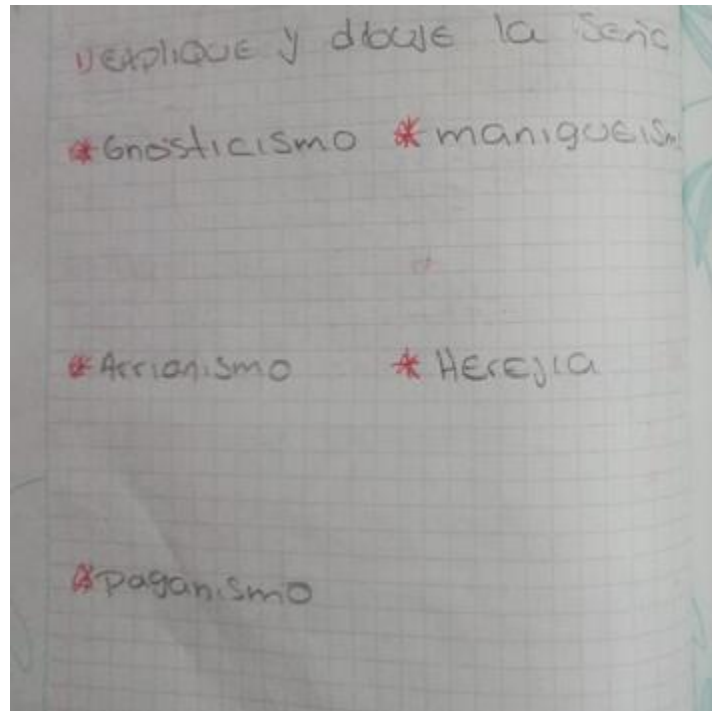 1) explique y dibuje la
* Gnosticismo * maniqueism
* Arrianismo * Herejia
* paganismo